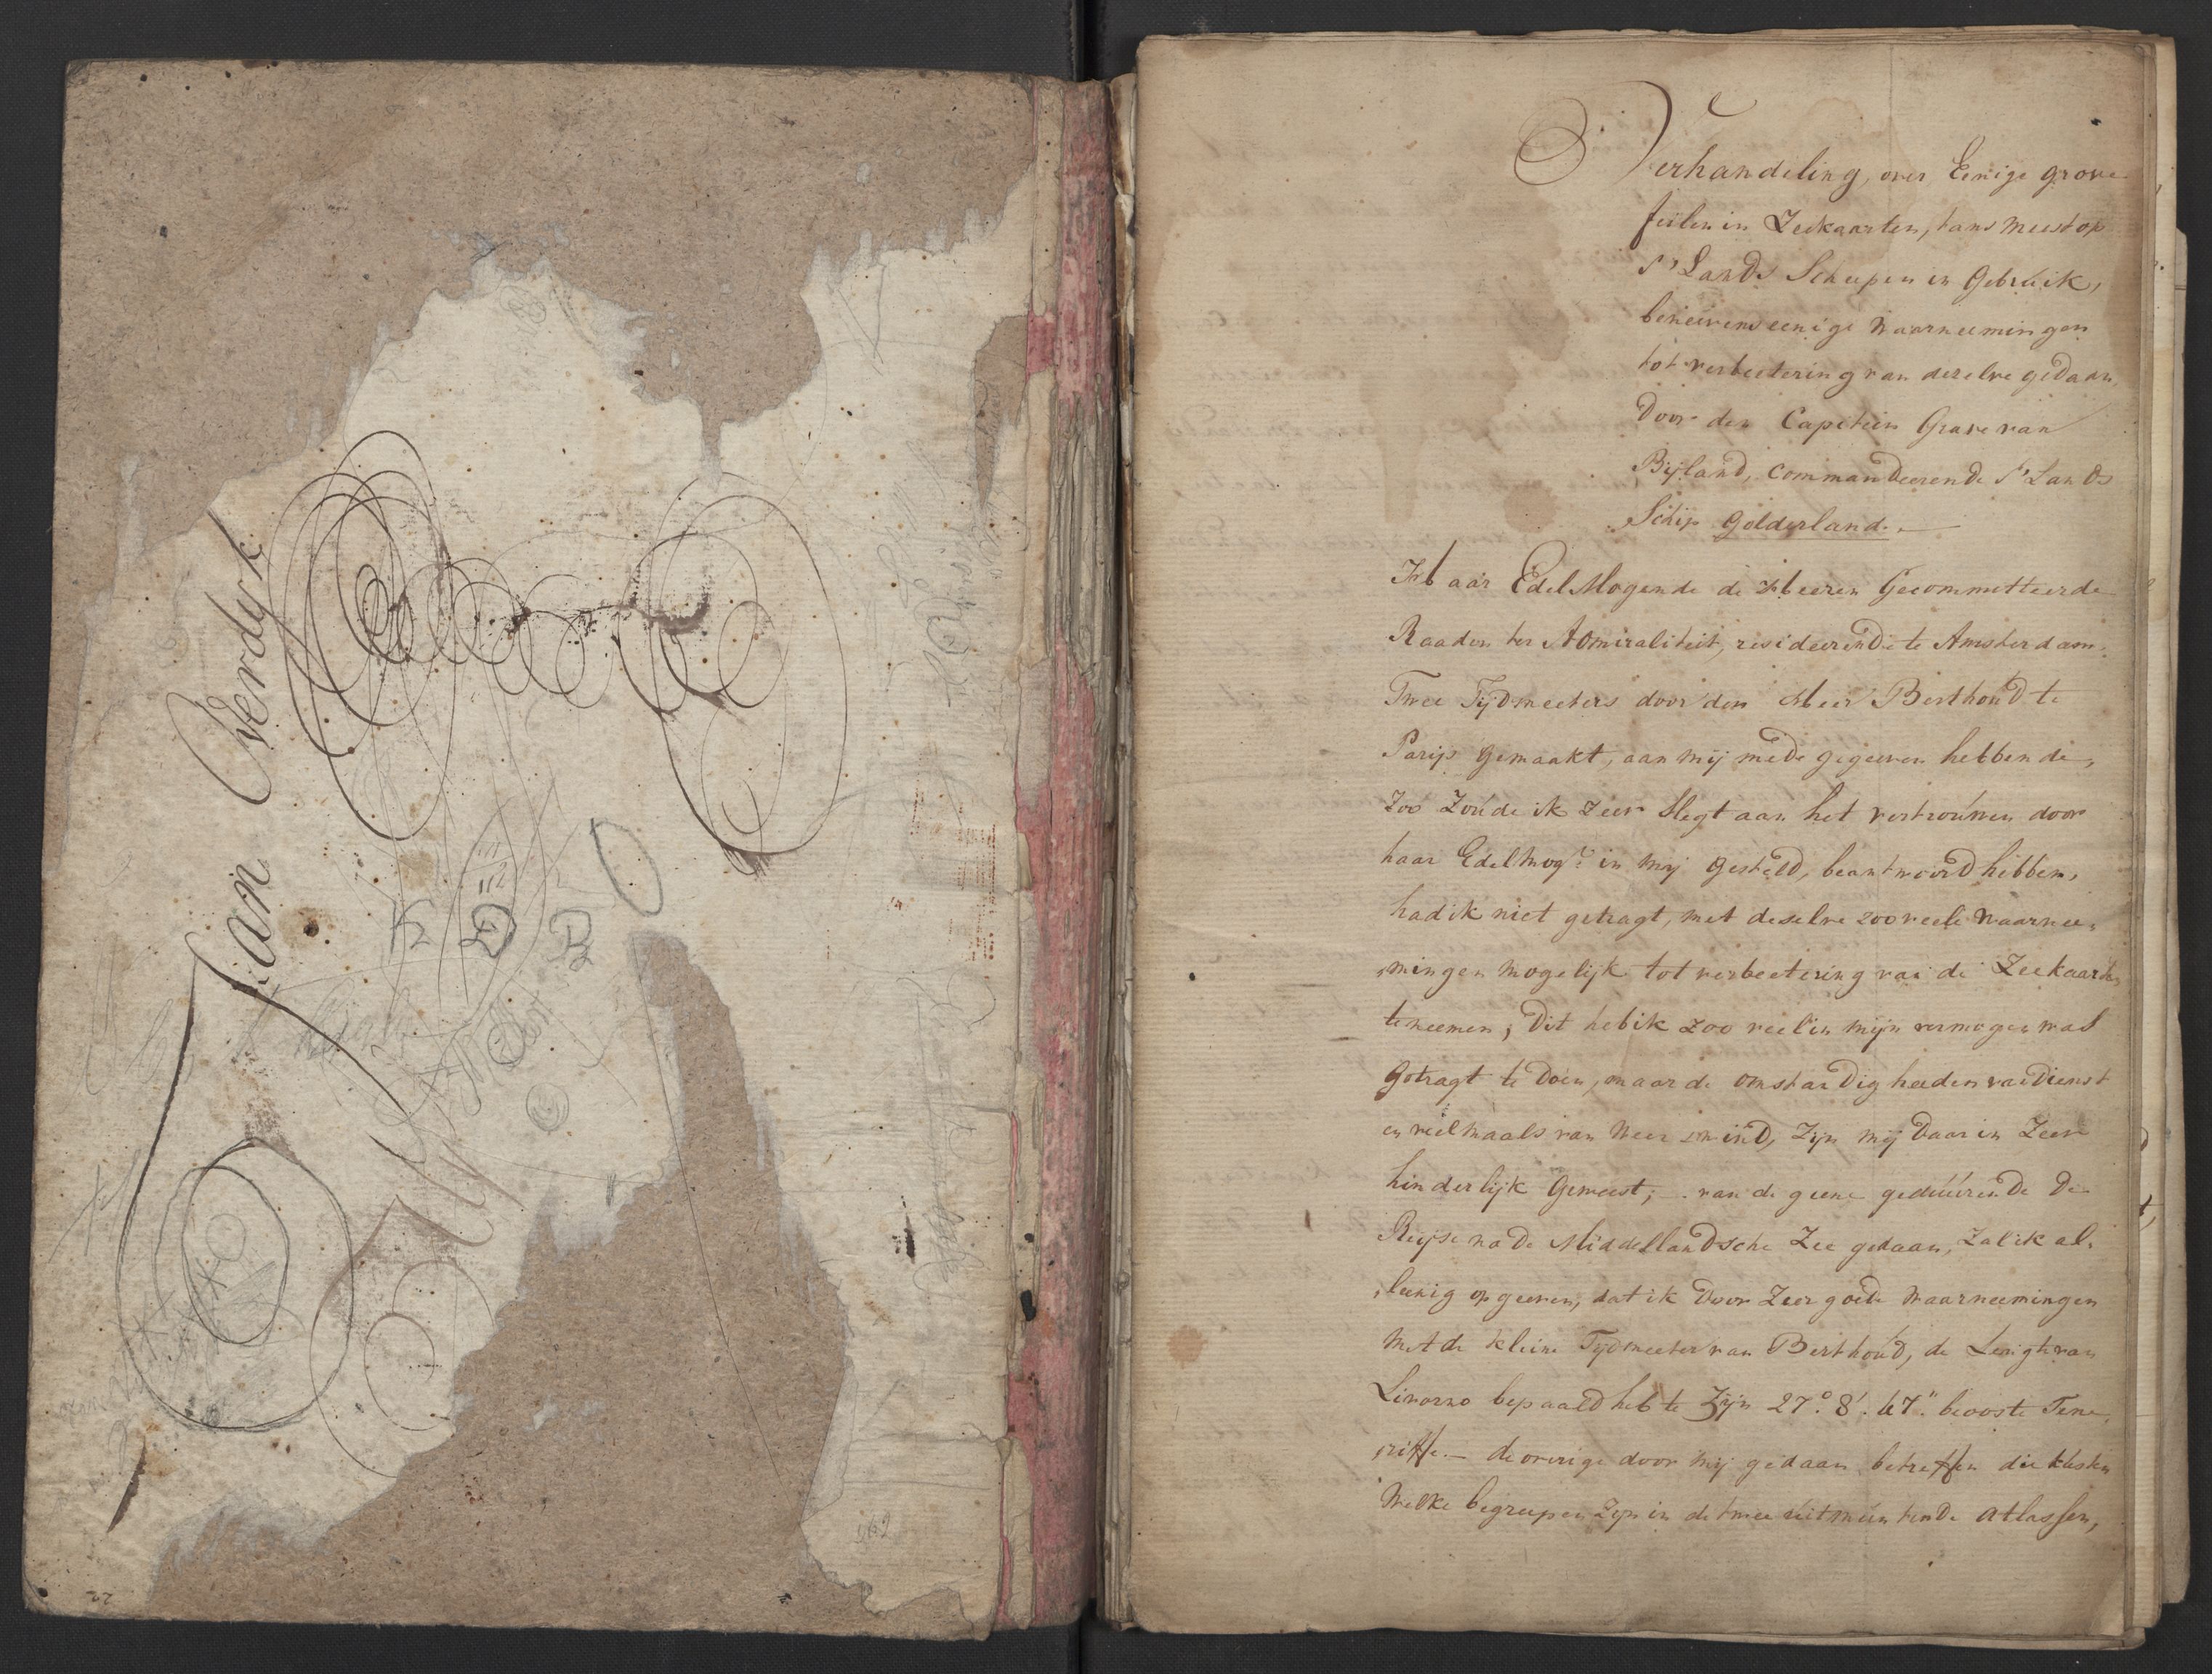 Jan Verdyk
Verhandeling, over Eenige grove
feilen in Zeekaarten, tans meest op
s'Lands Scheepen in Gebruik,
beneevens eenige Waarneemingen
tot verbeetering van dezelve gedaan,
Door den Capitein Grave van
Bijland, Commandeerende s'Lands
Schip Gelderland.
Haar Edel Mogende de Heeren Gecommitteerde
Raaden ter Admiraliteit, resideerende te Amsterdam,
Twee Tijdmeeters door den Heer Berthoud te
Parijs Gemaakt, aan mij mede gegeeven hebbende,
Zoo Zoude ik Zeer Slegt aan het vertrouwen door
haar Edel Mog: in mij Gesteld, beantwoord hebben,
had ik niet getragt, met deselve zoo veele Waarnee,
,mingen Mogelijk tot verbeetering van de Zeekaarten
te neemen; Dit heb ik zoo veel in mijn vermogen was
Getragt te Doen, maar de omstandigheeden van Dienst
en veelmaals van Weer en wind, Zijn mij Daar in Zeer
hinderlijk Geweest; van de geene geduurende De
Reijse na De Middellandsche Zee gedaan, Zal ik al,
,leenig op geeven, dat ik Door Zeer goede Waarneemingen
Met de kleine Tijdmeeter van Berthoud, de Lengte van
Livorno bepaald heb te Zijn 27.° 8'. 47." beooste Tene,
,riffe. — de overige door mij gedaan betreffen die kusten
Welke begreepen Zijn in de twee uitmuntende atlassen,